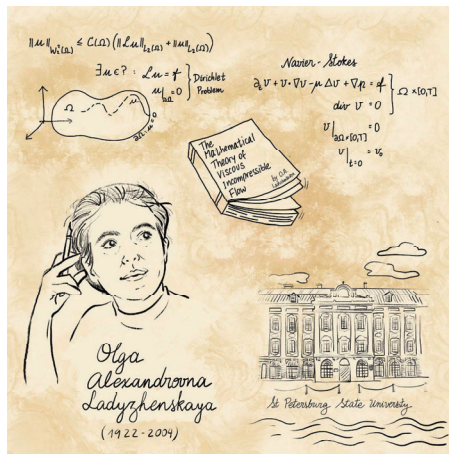 ‖u‖W₂²(Ω) ≤ C(Ω) (‖Lu‖L₂(Ω) + ‖u‖L₂(Ω))
∃u∈? : Lu = f
u|∂Ω = 0
Dirichlet
Problem
Ω
u
u|∂Ω = 0
Navier-Stokes
∂ₜv + v·∇v - μΔv + ∇p = f
div v = 0
Ω×[0,T]
v|∂Ω×[0,T] = 0
v|t=0 = v₀
The
Mathematical
Theory of
Viscous
Incompressible
Flow
by O.A.
Ladyzhenskaya
Olga
Alexandrovna
Ladyzhenskaya
(1922-2004)
St Petersburg State University